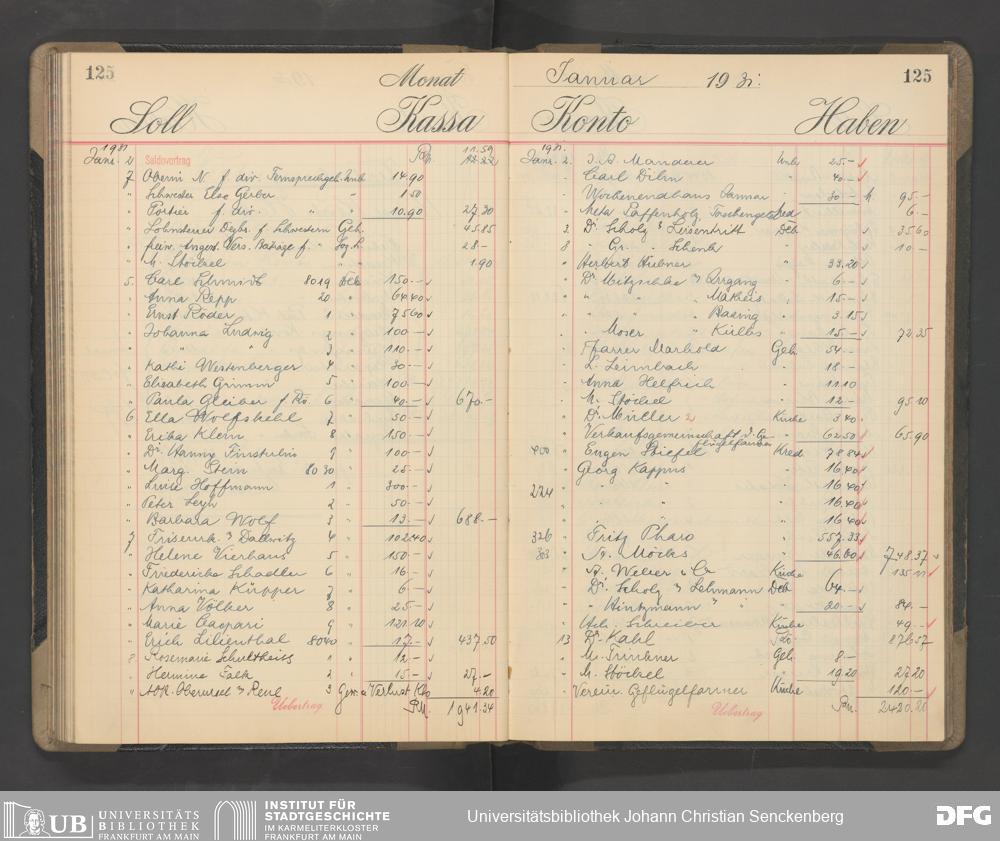 125 Monat
Soll Kassa
1931
Janr. 2 Saldovortrag Rm 11.59
7 Oberin N. f. div. Fernsprechgeb. Unk 14.90
" Schwester Else Gerber - 1.50
" Portier f. div. " " 10.90 27.30
" f. Schwestern Geh. 45.85
" f. " 28.-
" M. Stöckel " " 1.90
5. Carl Schmidt 8019 Deb 150.-
" Anna Repp 20 " 64.40
" Ernst Röder 1 " 75.60
" Johanna Ludwig 2 100.-
" " " 3 " 110.-
" Käthi Westenberger 4 " 30.-
" Elisabeth Grimm 5 " 100.-
" Paula Gleiber f. 6 " 40.- 670.-
6 Ella Wolfskehl 7 " 50.-
" Erika Klein 8 " 150.-
" Dr. Hanny 9 " 100.-
" Marg. Stern 8030 " 25.-
" Luise Hoffmann 1 " 300.-
" Peter Leyh 2 " 50.-
" Barbara Wolf 3 " 13.- 688.-
7 & Dallwitz 4 " 102.40
" Helene Vierhaus 5 " 150.-
" Friedericke Schadler 6 " 16.-
" Katharina Küpper 7 " 6.-
" Anna Völker 8 " 25.-
" Marie Caspari 9 " 121.10
" Erich Lilienthal 8040 " 17.- 437.50
8. Rosemarie Schultheiss " " 12.-
" Hermine Falk 2 " 15.- 27.-
" Oberursel 3 Gew. u Verlust Kto 4.20
Uebertrag RM. 1941.34
Januar 1931. 125
Konto Haben
1931.
Janr. 2. J. A. Manderer Unk 25.-
" Carl Dilm " 40.-
" Wochenendhaus Januar " 30.- 95.-
" Meta Paffenholz Taschengeld Kred 6.-
3. Dr. Scholz & Leisentritt Deb 35.60
8 " Gr. " Schenk " 10.-
" Herbert Hübner " 33.20
" Dr. Mitzschke & " 6.-
" " " Matheis " 15.-
" " " Baenig " 3.15
" " Moser " Küllbs " 15.- 72.35
" Pfarrer Marhold Geh. 54.-
" L. Leimbach " 18.-
" Anna Helfrich " 11.10
" M. Stöckel " 12.- 95.10
" Dr. Müller 2 Küche 3.40
" Verkaufsgemeinschaft d. Geflügelfarmer " 62.50 65.90
400 " Eugen Stiefel Kred 78.84
" Georg Kappus " 16.40
224 " " 16.40
" " 16.40
" " 16.40
326 " Fritz Pharo " 557.33
303 " N. Möcks " 46.60 748.37
" A. Weber & Co Küche 135.11
" Dr. Scholz & Lehmann Deb 64.-
" " Hintzmann " " 20.- 84.-
" Ath. Schreiber Küche 49.-
13 Dr. Kahl 876.57
" M. Geh. 8.-
" M. Stöckel " 19.20 27.20
" Verein. Geflügelfarmer Küche 120.-
Uebertrag Rm. 2420.20
UB UNIVERSITÄTS
BIBLIOTHEK
FRANKFURT AM MAIN
INSTITUT FÜR
STADTGESCHICHTE
IM KARMELITERKLOSTER
FRANKFURT AM MAIN
Universitätsbibliothek Johann Christian Senckenberg
DFG